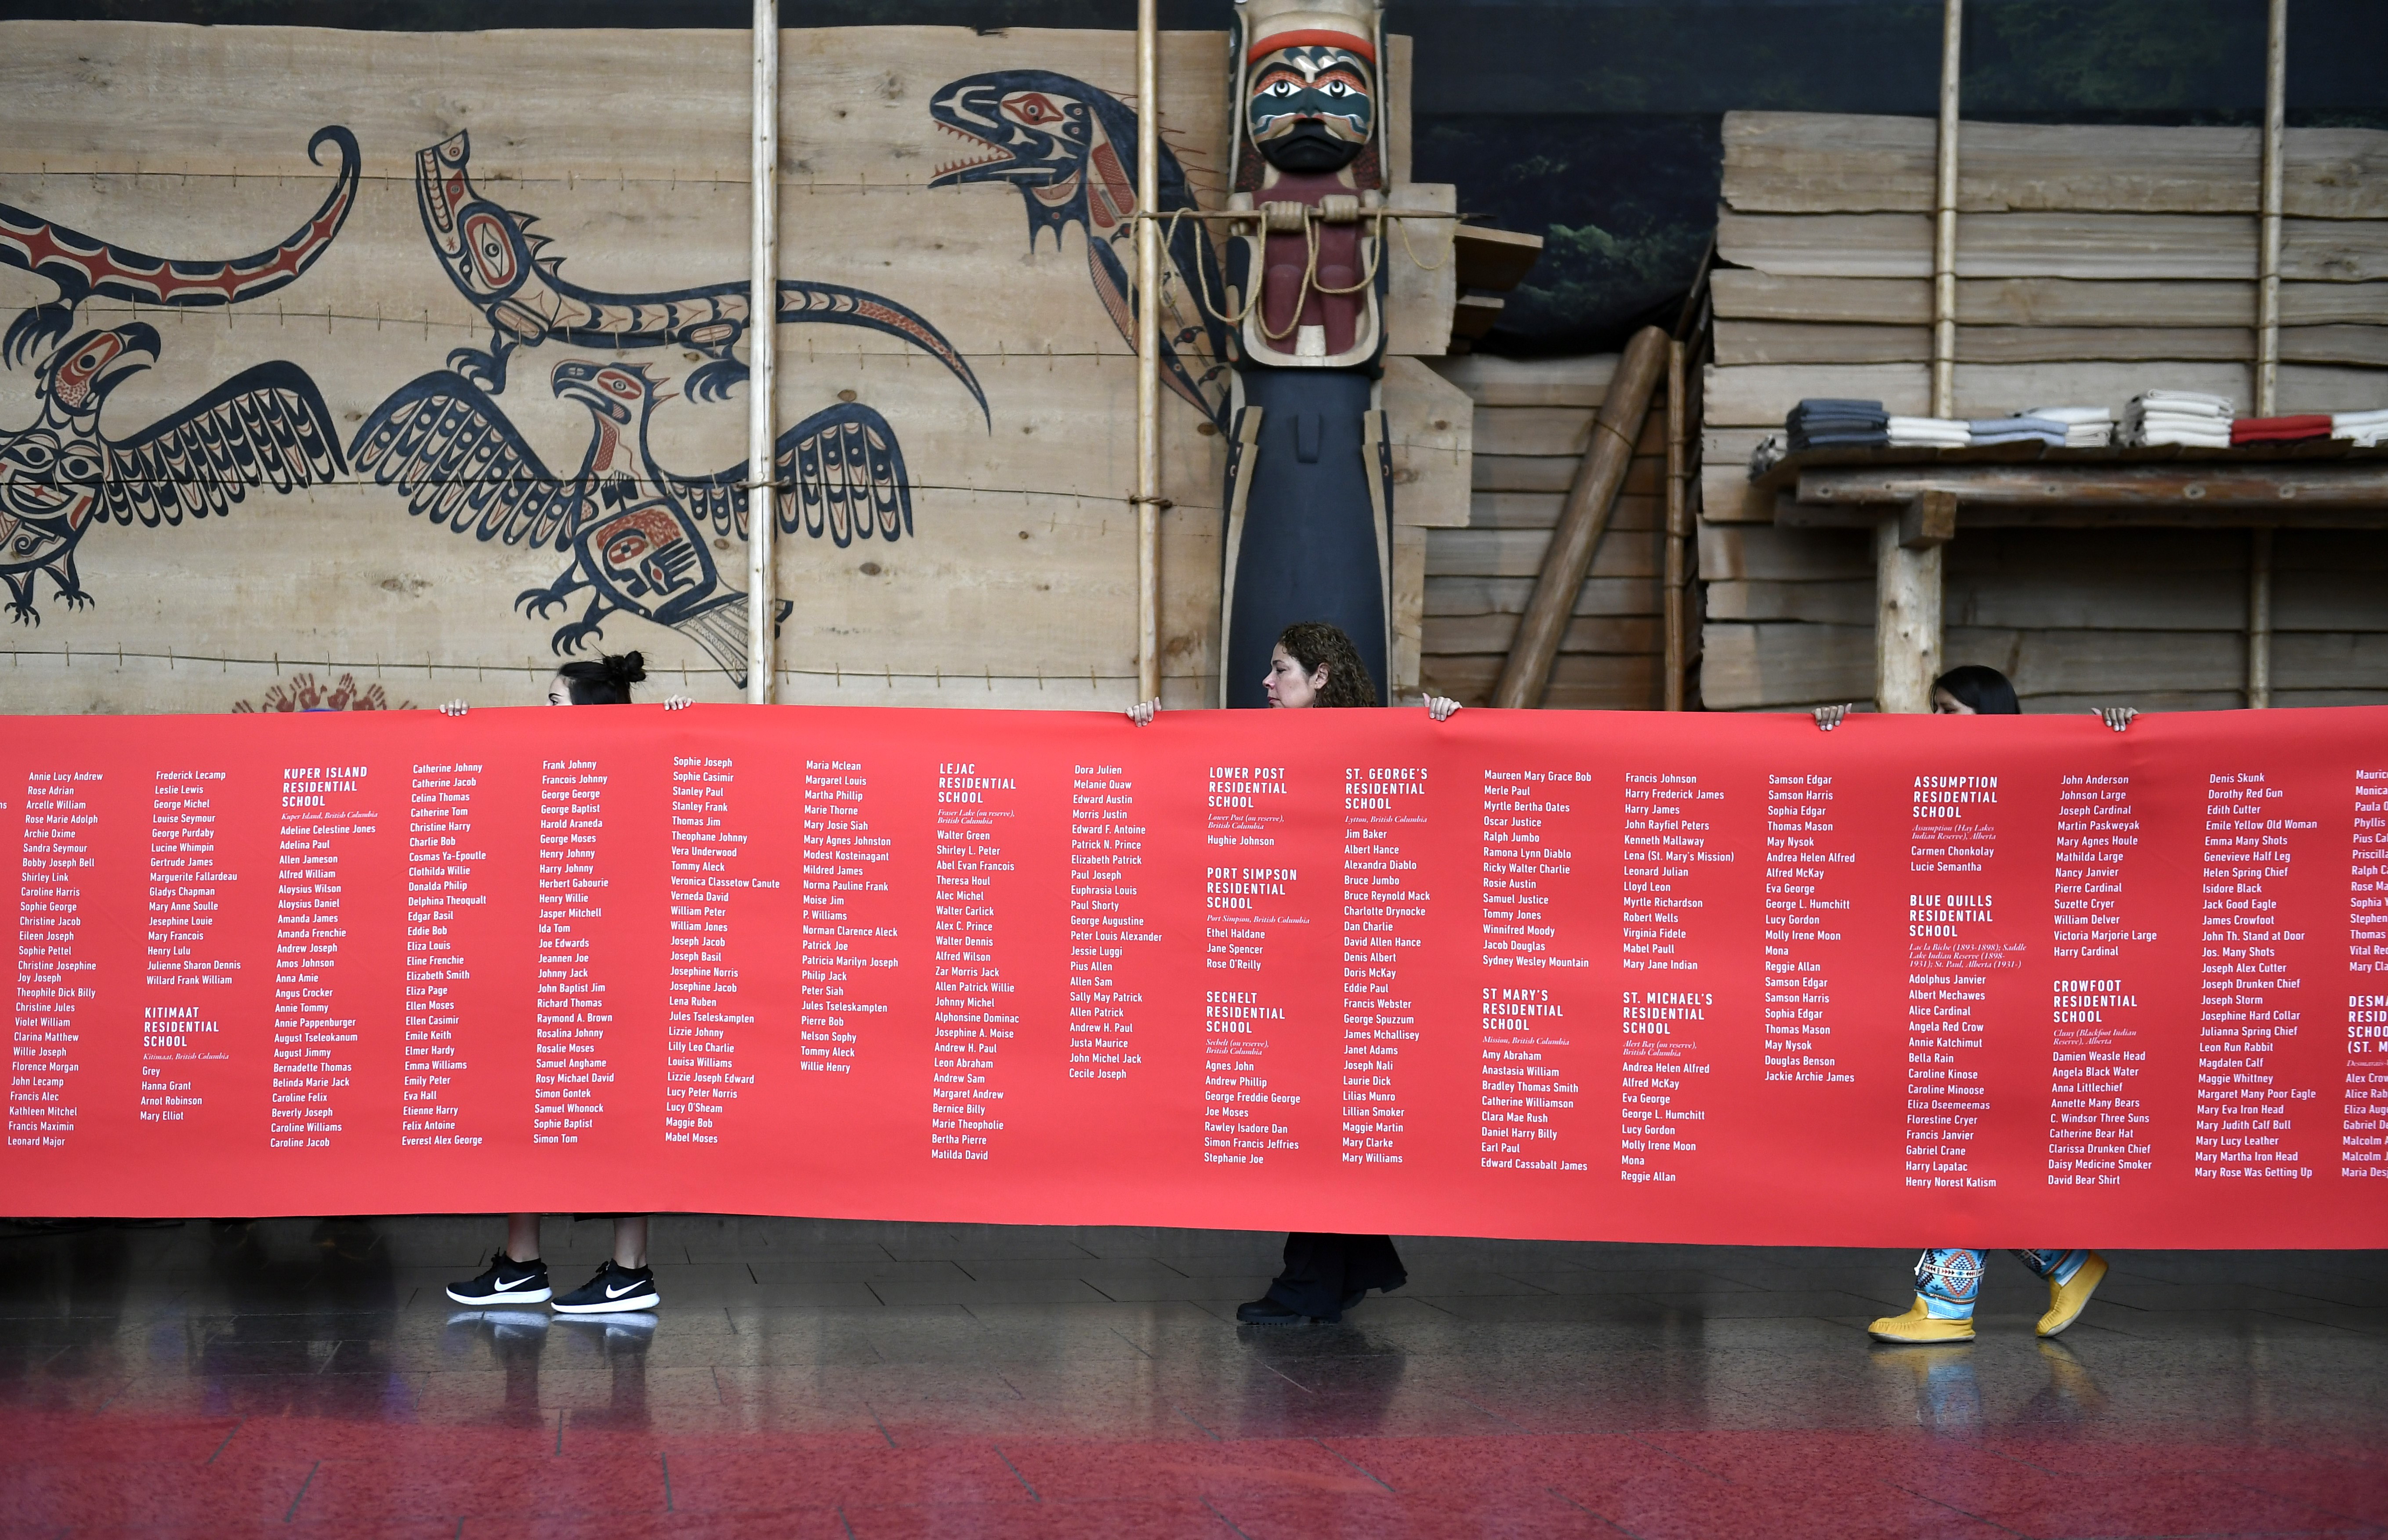 ns
Annie Lucy Andrew
Rose Adrian
Arcelle William
Rose Marie Adolph
Archie Oxime
Sandra Seymour
Bobby Joseph Bell
Shirley Link
Caroline Harris
Sophie George
Christine Jacob
Eileen Joseph
Sophie Pettel
Christine Josephine
Joy Joseph
Theophile Dick Billy
Christine Jules
Violet William
Clarina Matthew
Willie Joseph
Florence Morgan
John Lecamp
Francis Alec
Kathleen Mitchel
Francis Maximin
Leonard Major
Frederick Lecamp
Leslie Lewis
George Michel
Louise Seymour
George Purdaby
Lucine Whimpin
Gertrude James
Marguerite Fallardeau
Gladys Chapman
Mary Anne Soulle
Jesephine Louie
Mary Francois
Henry Lulu
Julienne Sharon Dennis
Willard Frank William
KITIMAAT
RESIDENTIAL
SCHOOL
Kitimaat, British Columbia
Grey
Hanna Grant
Arnot Robinson
Mary Elliot
KUPER ISLAND
RESIDENTIAL
SCHOOL
Kuper Island, British Columbia
Adeline Celestine Jones
Adelina Paul
Allen Jameson
Alfred William
Aloysius Wilson
Aloysius Daniel
Amanda James
Amanda Frenchie
Andrew Joseph
Amos Johnson
Anna Amie
Angus Crocker
Annie Tommy
Annie Pappenburger
August Tseloukanum
August Jimmy
Bernadette Thomas
Belinda Marie Jack
Caroline Felix
Beverly Joseph
Caroline Williams
Caroline Jacob
Catherine Johnny
Catherine Jacob
Celina Thomas
Catherine Tom
Christine Harry
Charlie Bob
Cosmas Ya-Epoutle
Clothilda Willie
Donalda Philip
Delphina Theoqualt
Edgar Basil
Eddie Bob
Eliza Louis
Eline Frenchie
Elizabeth Smith
Eliza Page
Ellen Moses
Ellen Casimir
Emile Keith
Elmer Hardy
Emma Williams
Emily Peter
Eva Hall
Etienne Harry
Felix Antoine
Everest Alex George
Frank Johnny
Francois Johnny
George George
George Baptist
Harold Araneda
George Moses
Henry Johnny
Harry Johnny
Herbert Gabourie
Henry Willie
Jasper Mitchell
Ida Tom
Joe Edwards
Jeannen Joe
Johnny Jack
John Baptist Jim
Richard Thomas
Raymond A. Brown
Rosalina Johnny
Rosalie Moses
Samuel Anghame
Rosy Michael David
Simon Gontek
Samuel Whonock
Sophie Baptist
Simon Tom
Sophie Joseph
Sophie Casimir
Stanley Paul
Stanley Frank
Thomas Jim
Theophane Johnny
Vera Underwood
Tommy Aleck
Veronica Classetow Canute
Verneda David
William Peter
William Jones
Joseph Jacob
Joseph Basil
Josephine Norris
Josephine Jacob
Lena Ruben
Jules Tseleskampten
Lizzie Johnny
Lilly Leo Charlie
Louisa Williams
Lizzie Joseph Edward
Lucy Peter Norris
Lucy O'Sheam
Maggie Bob
Mabel Moses
Maria Mclean
Margaret Louis
Martha Phillip
Marie Thorne
Mary Josie Siah
Mary Agnes Johnston
Modest Kosteinagant
Mildred James
Norma Pauline Frank
Moise Jim
P. Williams
Norman Clarence Aleck
Patrick Joe
Patricia Marilyn Joseph
Philip Jack
Peter Siah
Jules Tseleskampten
Pierre Bob
Nelson Sophy
Tommy Aleck
Willie Henry
LEJAC
RESIDENTIAL
SCHOOL
Fraser Lake (on reserve),
British Columbia
Walter Green
Shirley L. Peter
Abel Evan Francois
Theresa Houl
Alec Michel
Walter Carlick
Alex C. Prince
Walter Dennis
Alfred Wilson
Zar Morris Jack
Allen Patrick Willie
Johnny Michel
Alphonsine Dominac
Josephine A. Moise
Andrew H. Paul
Leon Abraham
Andrew Sam
Margaret Andrew
Bernice Billy
Marie Theopholie
Bertha Pierre
Matilda David
Dora Julien
Melanie Quaw
Edward Austin
Morris Justin
Edward F. Antoine
Patrick N. Prince
Elizabeth Patrick
Paul Joseph
Euphrasia Louis
Paul Shorty
George Augustine
Peter Louis Alexander
Jessie Luggi
Pius Allen
Allen Sam
Sally May Patrick
Allen Patrick
Andrew H. Paul
Justa Maurice
John Michel Jack
Cecile Joseph
LOWER POST
RESIDENTIAL
SCHOOL
Lower Post (on reserve),
British Columbia
Hughie Johnson
PORT SIMPSON
RESIDENTIAL
SCHOOL
Port Simpson, British Columbia
Ethel Haldane
Jane Spencer
Rose O'Reilly
SECHELT
RESIDENTIAL
SCHOOL
Sechelt (on reserve),
British Columbia
Agnes John
Andrew Phillip
George Freddie George
Joe Moses
Rawley Isadore Dan
Simon Francis Jeffries
Stephanie Joe
ST. GEORGE'S
RESIDENTIAL
SCHOOL
Lytton, British Columbia
Jim Baker
Albert Hance
Alexandra Diablo
Bruce Jumbo
Bruce Reynold Mack
Charlotte Drynocke
Dan Charlie
David Allen Hance
Denis Albert
Doris McKay
Eddie Paul
Francis Webster
George Spuzzum
James Mchallisey
Janet Adams
Joseph Nali
Laurie Dick
Lilias Munro
Lillian Smoker
Maggie Martin
Mary Clarke
Mary Williams
Maureen Mary Grace Bob
Merle Paul
Myrtle Bertha Oates
Oscar Justice
Ralph Jumbo
Ramona Lynn Diablo
Ricky Walter Charlie
Rosie Austin
Samuel Justice
Tommy Jones
Winnifred Moody
Jacob Douglas
Sydney Wesley Mountain
ST MARY'S
RESIDENTIAL
SCHOOL
Mission, British Columbia
Amy Abraham
Anastasia William
Bradley Thomas Smith
Catherine Williamson
Clara Mae Rush
Daniel Harry Billy
Earl Paul
Edward Cassabalt James
Francis Johnson
Harry Frederick James
Harry James
John Rayfiel Peters
Kenneth Mallaway
Lena (St. Mary's Mission)
Leonard Julian
Lloyd Leon
Myrtle Richardson
Robert Wells
Virginia Fidele
Mabel Paull
Mary Jane Indian
ST. MICHAEL'S
RESIDENTIAL
SCHOOL
Alert Bay (on reserve),
British Columbia
Andrea Helen Alfred
Alfred McKay
Eva George
George L. Humchitt
Lucy Gordon
Molly Irene Moon
Mona
Reggie Allan
Samson Edgar
Samson Harris
Sophia Edgar
Thomas Mason
May Nysok
Andrea Helen Alfred
Alfred McKay
Eva George
George L. Humchitt
Lucy Gordon
Molly Irene Moon
Mona
Reggie Allan
Samson Edgar
Samson Harris
Sophia Edgar
Thomas Mason
May Nysok
Douglas Benson
Jackie Archie James
ASSUMPTION
RESIDENTIAL
SCHOOL
Assumption (Hay Lakes
Indian Reserve), Alberta
Carmen Chonkolay
Lucie Semantha
BLUE QUILLS
RESIDENTIAL
SCHOOL
Lac la Biche (1893-1898); Saddle
Lake Indian Reserve (1898-
1931); St. Paul, Alberta (1931-)
Adolphus Janvier
Albert Mechawes
Alice Cardinal
Angela Red Crow
Annie Katchimut
Bella Rain
Caroline Kinose
Caroline Minoose
Eliza Oseemeemas
Florestine Cryer
Francis Janvier
Gabriel Crane
Harry Lapatac
Henry Norest Katism
John Anderson
Johnson Large
Joseph Cardinal
Martin Paskweyak
Mary Agnes Houle
Mathilda Large
Nancy Janvier
Pierre Cardinal
Suzette Cryer
William Delver
Victoria Marjorie Large
Harry Cardinal
CROWFOOT
RESIDENTIAL
SCHOOL
Cluny (Blackfoot Indian
Reserve), Alberta
Damien Weasle Head
Angela Black Water
Anna Littlechief
Annette Many Bears
C. Windsor Three Suns
Catherine Bear Hat
Clarissa Drunken Chief
Daisy Medicine Smoker
David Bear Shirt
Denis Skunk
Dorothy Red Gun
Edith Cutter
Emile Yellow Old Woman
Emma Many Shots
Genevieve Half Leg
Helen Spring Chief
Isidore Black
Jack Good Eagle
James Crowfoot
John Th. Stand at Door
Jos. Many Shots
Joseph Alex Cutter
Joseph Drunken Chief
Joseph Storm
Josephine Hard Collar
Julianna Spring Chief
Leon Run Rabbit
Magdalen Calf
Maggie Whitney
Margaret Many Poor Eagle
Mary Eva Iron Head
Mary Judith Calf Bull
Mary Lucy Leather
Mary Martha Iron Head
Mary Rose Was Getting Up
Mauric
Monica
Paula
Phyllis
Pius Ca
Priscill
Ralph C
Rose Ma
Sophia
Stephen
Thomas
Vital Re
Mary Cla
DESMA
RESID
SCHOO
(ST. M
Alex Cro
Alice Rab
Eliza Aug
Gabriel De
Malcolm
Malcolm J
Maria Desj